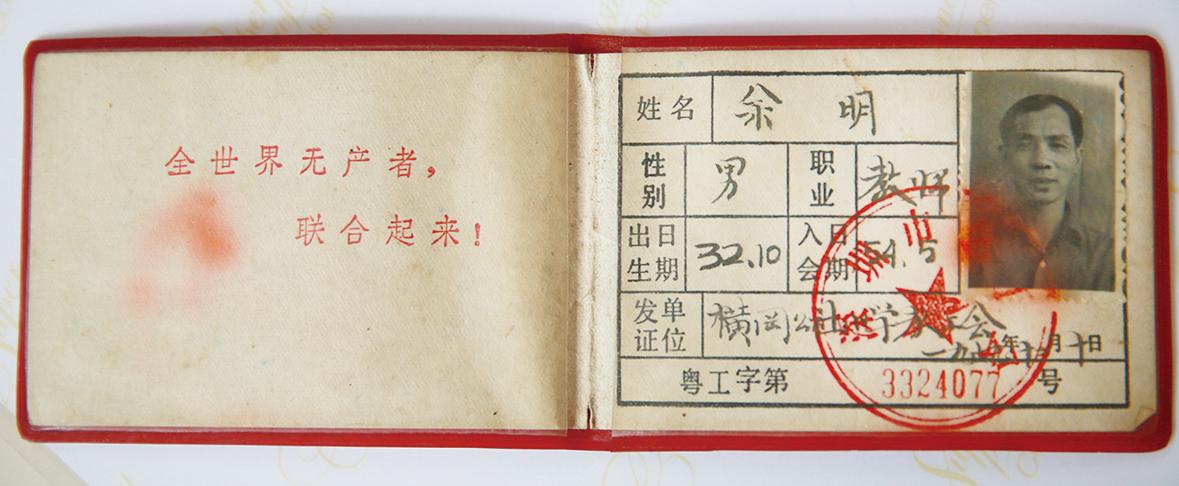 全世界无产者，
联合起来！
姓名 余 明
性别 男 职业 教师
出生日期 32.10 入会日期 54.5
发证单位 横岗公社小学教工会
年 月 十 日
粤工字第 3324077 号